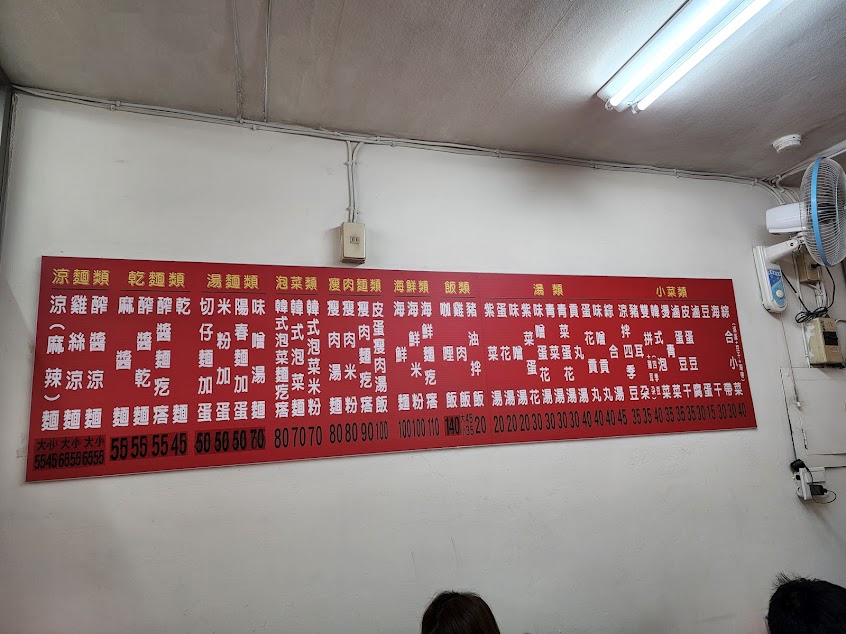 涼麵類
涼(麻辣)麵
大小
5545
雞絲涼麵
大小
醡醬涼麵
大小
6555
乾麵類
麻醬麵
55
醡醬乾麵
55
醡醬麵疙瘩
55
乾麵
45
湯麵類
切仔麵加蛋
50
米粉加蛋
50
陽春麵加蛋
50
味噌湯麵
70
泡菜類
韓式泡菜麵疙瘩
80
韓式泡菜麵
70
韓式泡菜米粉
70
瘦肉麵類
瘦肉湯麵
80
瘦肉米粉
80
瘦肉麵疙瘩
90
皮蛋瘦肉湯飯
100
海鮮類
海鮮麵
100
海鮮米粉
100
海鮮麵疙瘩
110
飯類
咖哩飯
140
雞肉飯
大45
小35
豬油拌飯
20
湯類
紫菜湯
20
蛋花湯
20
味噌湯
20
紫菜蛋花湯
30
味噌蛋花湯
30
青菜湯
30
青菜蛋花湯
30
貢丸湯
30
蛋花貢丸
40
味噌貢丸
40
綜合湯
45
小菜類
涼拌四季豆
35
豬耳朵
35
雙拼
40
韓式泡菜
35
燙青菜
40
滷蛋豆干
皮蛋豆腐
滷蛋
15
豆干
30
海帶
30
綜合小菜
40